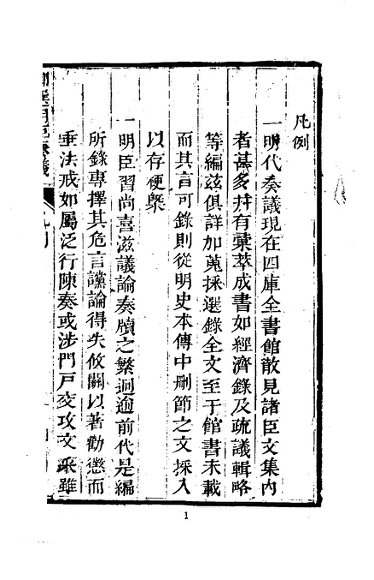 凡例
一明代奏議現在四庫全書館散見諸臣文集內
者甚多幷有彙萃成書如經濟錄及疏議輯略
等編茲俱詳加蒐採選錄全文至于館書未載
而其言可錄則從明史本傳中刪節之文採入
以存梗槩
一明臣習尚喜滋議論奏牘之繁迥逾前代是編
所錄專擇其危言讜論得失攸關以著勸懲而
垂法戒如屬泛行陳奏或涉門戶交攻文采雖
1